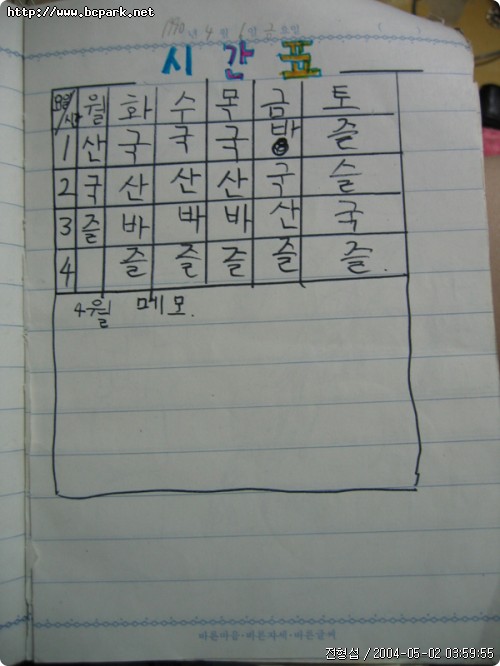 http://www.bcpark.net
1990년 4월 6일 금요일 ( )
시간표
요일/시간 월 화 수 목 금 토
1 산 국 국 국 바 즐
2 국 산 산 산 국 슬
3 즐 바 바 바 산 국
4 즐 즐 즐 즐 즐.
4월 메모.
바른마음·바른자세·바른글씨
전형섭 / 2004-05-02 03:59:55